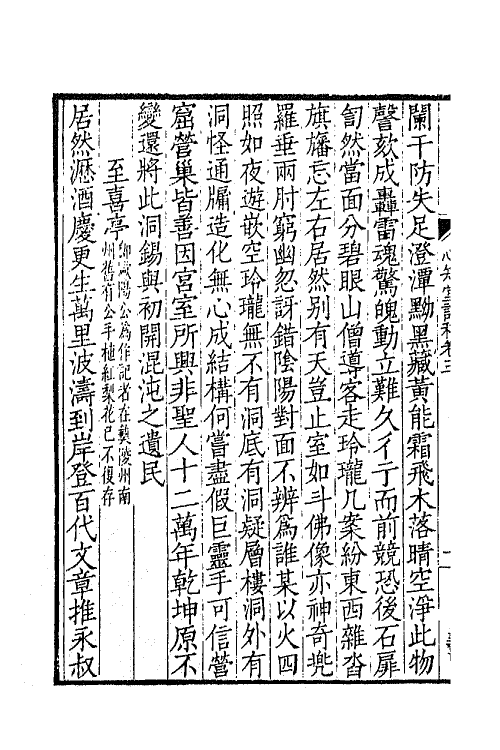 闌干防失足澄潭黝黑藏黃能霜飛木落晴空淨此物
謦欬成轟雷魂驚魄動立難久彳亍而前競恐後石扉
訇然當面分碧眼山僧導客走玲瓏几案紛東西雜沓
旗旛忘左右居然別有天豈止室如斗佛像亦神奇兠
羅垂兩肘窮幽忽訝錯陰陽對面不辨爲誰某以火四
照如夜遊嵌空玲瓏無不有洞底有洞疑層樓洞外有
洞怪通牖造化無心成結構何嘗盡假巨靈手可信營
窟營巢皆善因宮室所興非聖人十二萬年乾坤原不
變還將此洞錫與初開混沌之遺民
至喜亭
卽歐陽公爲作記者在夷陵州南
州舊有公手植紅梨花已不復存
居然瀝酒慶更生萬里波濤到岸登百代文章推永叔